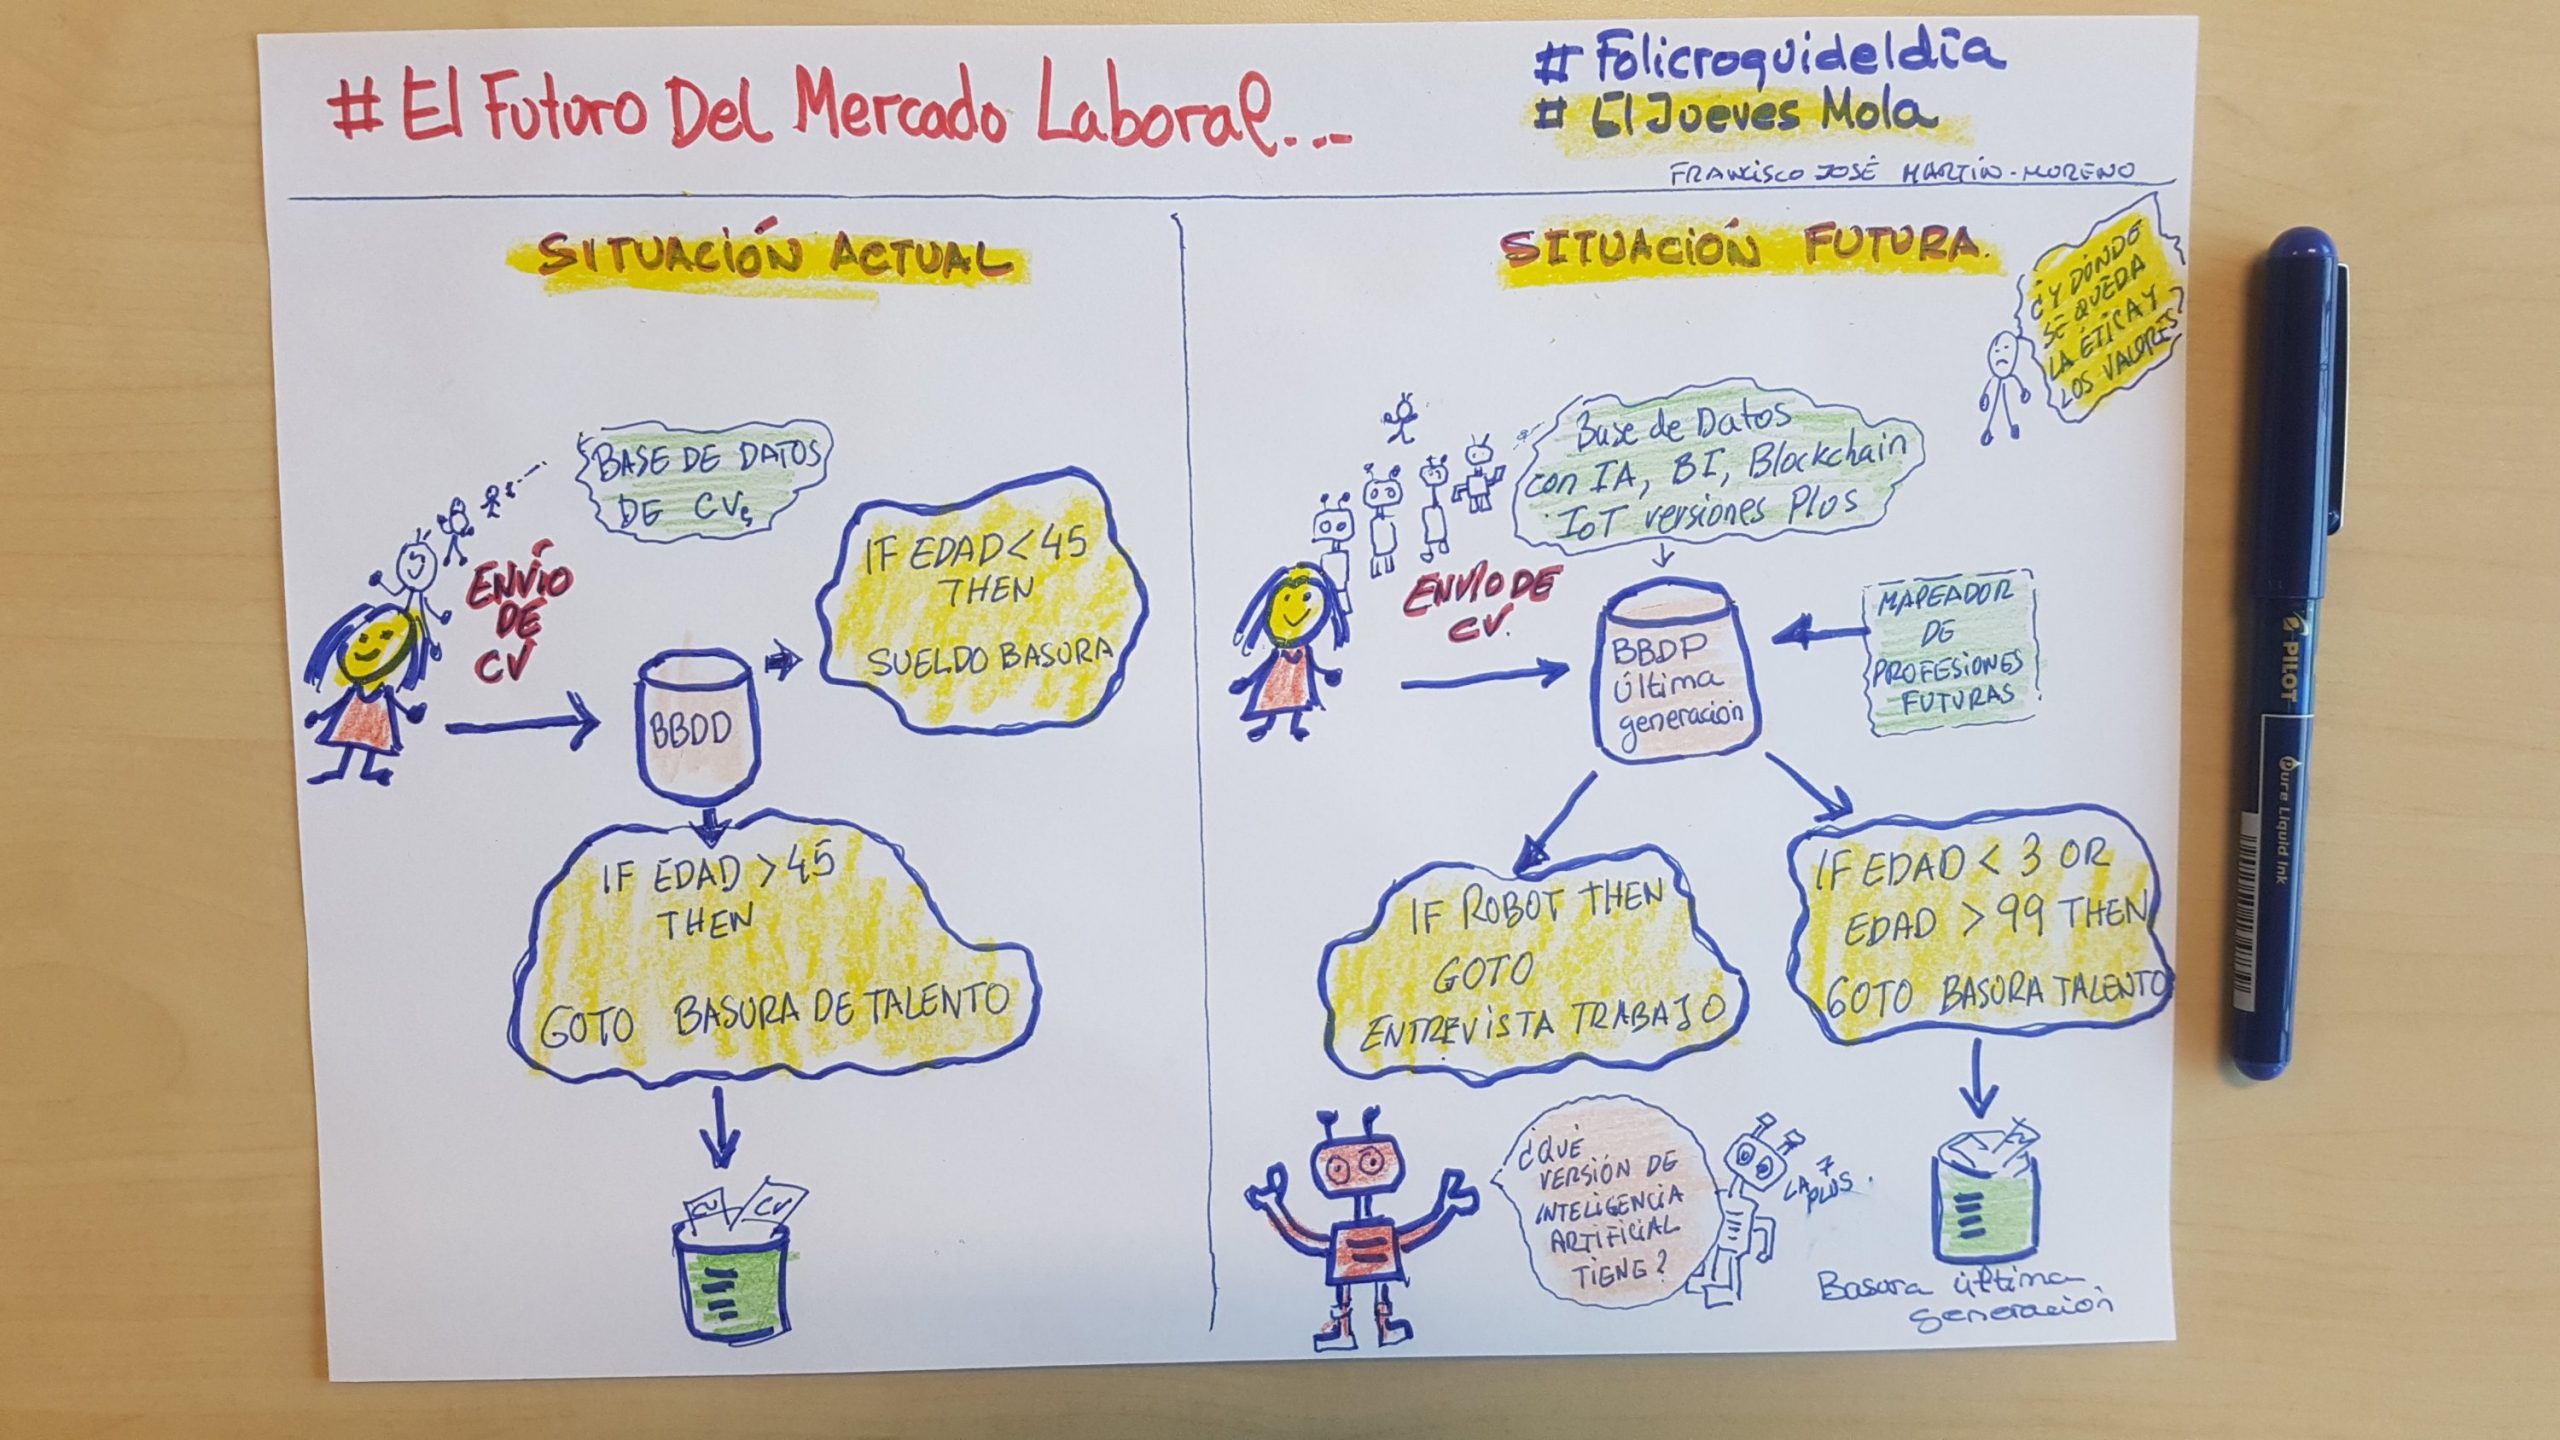 # El Futuro Del Mercado Laboral...
# Folicroquideldía
# El Jueves Mola
FRANCISCO JOSÉ MARTÍN-MORENO
SITUACIÓN ACTUAL
BASE DE DATOS
DE CVs
ENVÍO
DE
CV
BBDD
IF EDAD < 45
THEN
SUELDO BASURA
IF EDAD > 45
THEN
GOTO BASURA DE TALENTO
CV
CV
SITUACIÓN FUTURA.
¿Y DÓNDE
SE QUEDA
LA ÉTICA Y
LOS VALORES
Base de Datos
con IA, BI, Blockchain
IoT versiones Plus
ENVÍO DE
CV.
BBDP
última
generación
MAPEADOR
DE
PROFESIONES
FUTURAS
IF ROBOT THEN
GOTO
ENTREVISTA TRABAJO
IF EDAD < 3 OR
EDAD > 99 THEN
GOTO BASURA TALENTO
¿QUÉ
VERSIÓN DE
INTELIGENCIA
ARTIFICIAL
TIENE?
LA 7
PLUS.
Basura última
generación
PILOT
Pure Liquid Ink